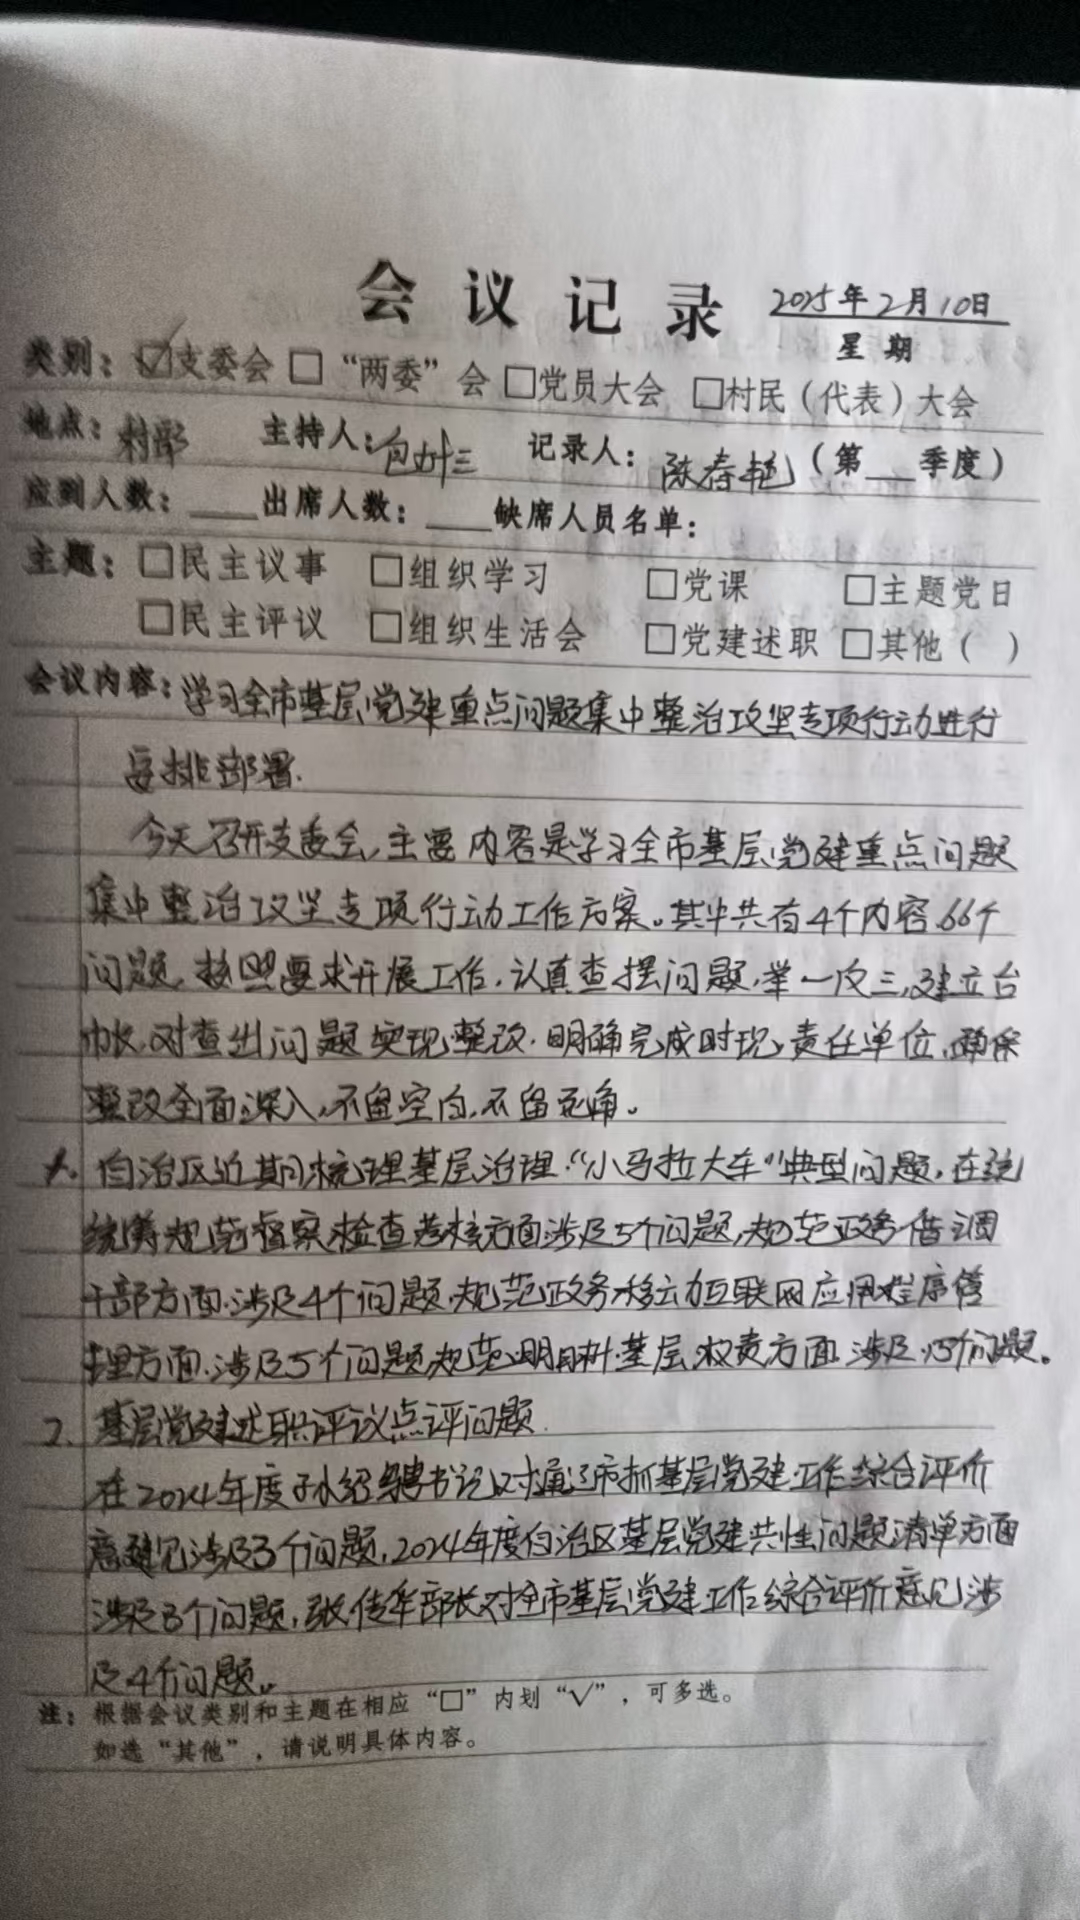 会议记录 2025年2月10日
星期
类别：☑支委会 □“两委”会 □党员大会 □村民（代表）大会
地点：村部 主持人：包 三 记录人：陈春艳（第___季度）
应到人数：____出席人数：____缺席人员名单：
主题：□民主议事 □组织学习 □党课 □主题党日
□民主评议 □组织生活会 □党建述职 □其他（ ）
会议内容：学习全市基层党建重点问题集中整治攻坚专项行动进行
安排部署.
今天召开支委会,主要内容是学习全市基层党建重点问题
集中整治攻坚专项行动工作方案。其中共有4个内容.66个
问题,按照要求开展工作,认真查摆问题,举一反三,建立台
帐,对查出问题实现整改.明确完成时限,责任单位,确保
整改全面深入,不留空白,不留死角。
1. 自治区近期梳理基层治理“小马拉大车”典型问题,在统
统筹规范督察检查考核方面涉及5个问题,规范政务借调
干部方面涉及4个问题,规范政务移动互联网应用程序管
理方面.涉及5个问题,规范明晰基层权责方面涉及 个问题。
2. 基层党建述职评议点评问题.
在2024年度孙绍骋书记对通辽市抓基层党建工作综合评价
意见涉及3个问题,2024年度自治区基层党建共性问题清单方面
涉及8个问题,张传华部长对全市基层党建工作综合评价意见涉
及4个问题。
注：根据会议类别和主题在相应“□”内划“√”，可多选。
如选“其他”，请说明具体内容。